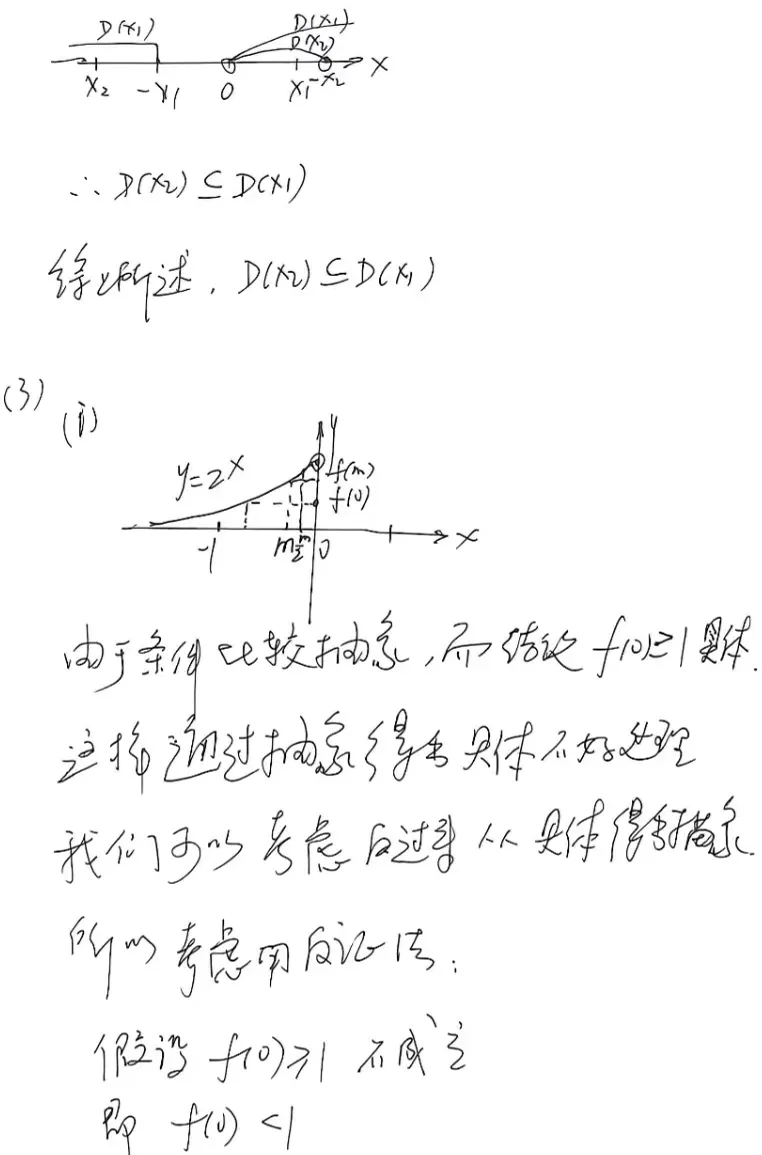 D(x₁) D(x₁)
D(x₂)
x₂ -x₁ 0 x₁ -x₂ x
∴ D(x₂) ⊆ D(x₁)
综上所述, D(x₂) ⊆ D(x₁)
(3)
(i)
y
y=2^x f(m)
f(0)
-1 m m/2 0 x
由于条件比较抽象,而结论 f(0)≥1 具体.
这样通过抽象得到具体不好处理
我们可以考虑反过来从具体得到抽象.
所以考虑用反证法:
假设 f(0)≥1 不成立
即 f(0)<1